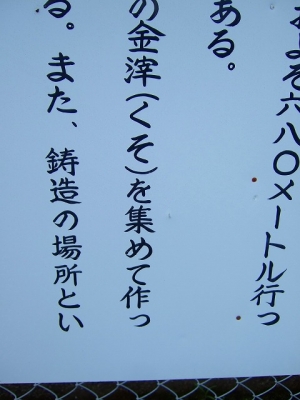 よそ六八〇メートル行っ
ある。
の金滓(くそ)を集めて作っ
る。また、鋳造の場所とい